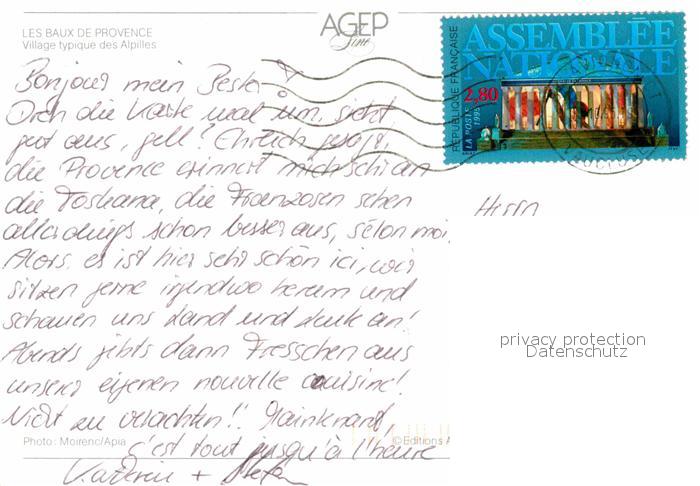 LES BAUX DE PROVENCE
Village typique des Alpilles
AGEP
RÉPUBLIQUE FRANÇAISE
ASSEMBLÉE
NATIONALE
2,80
LA POSTE 1995
Bonjour mein Bester!
Dreh die Karte mal um, sieht
gut aus, gell? Ehrlich gesagt,
die Provence erinnert mich schi an
die Toskana, die Franzosen sehen
allerdings schon besser aus, sélon moi.
Alors es ist hier sehr schön ici, wir
sitzen gerne irgendwo herum und
schauen uns Land und Leute an!
Abends gibts dann Fresschen aus
unserer eigenen nouvelle cuisine!
Nicht zu verachten!! Maintenant,
c'est tout jusqu'à l'heure
Katrin + Stefan
Herrn
privacy protection
Datenschutz
Photo: Moirenc/Apia
© Editions A